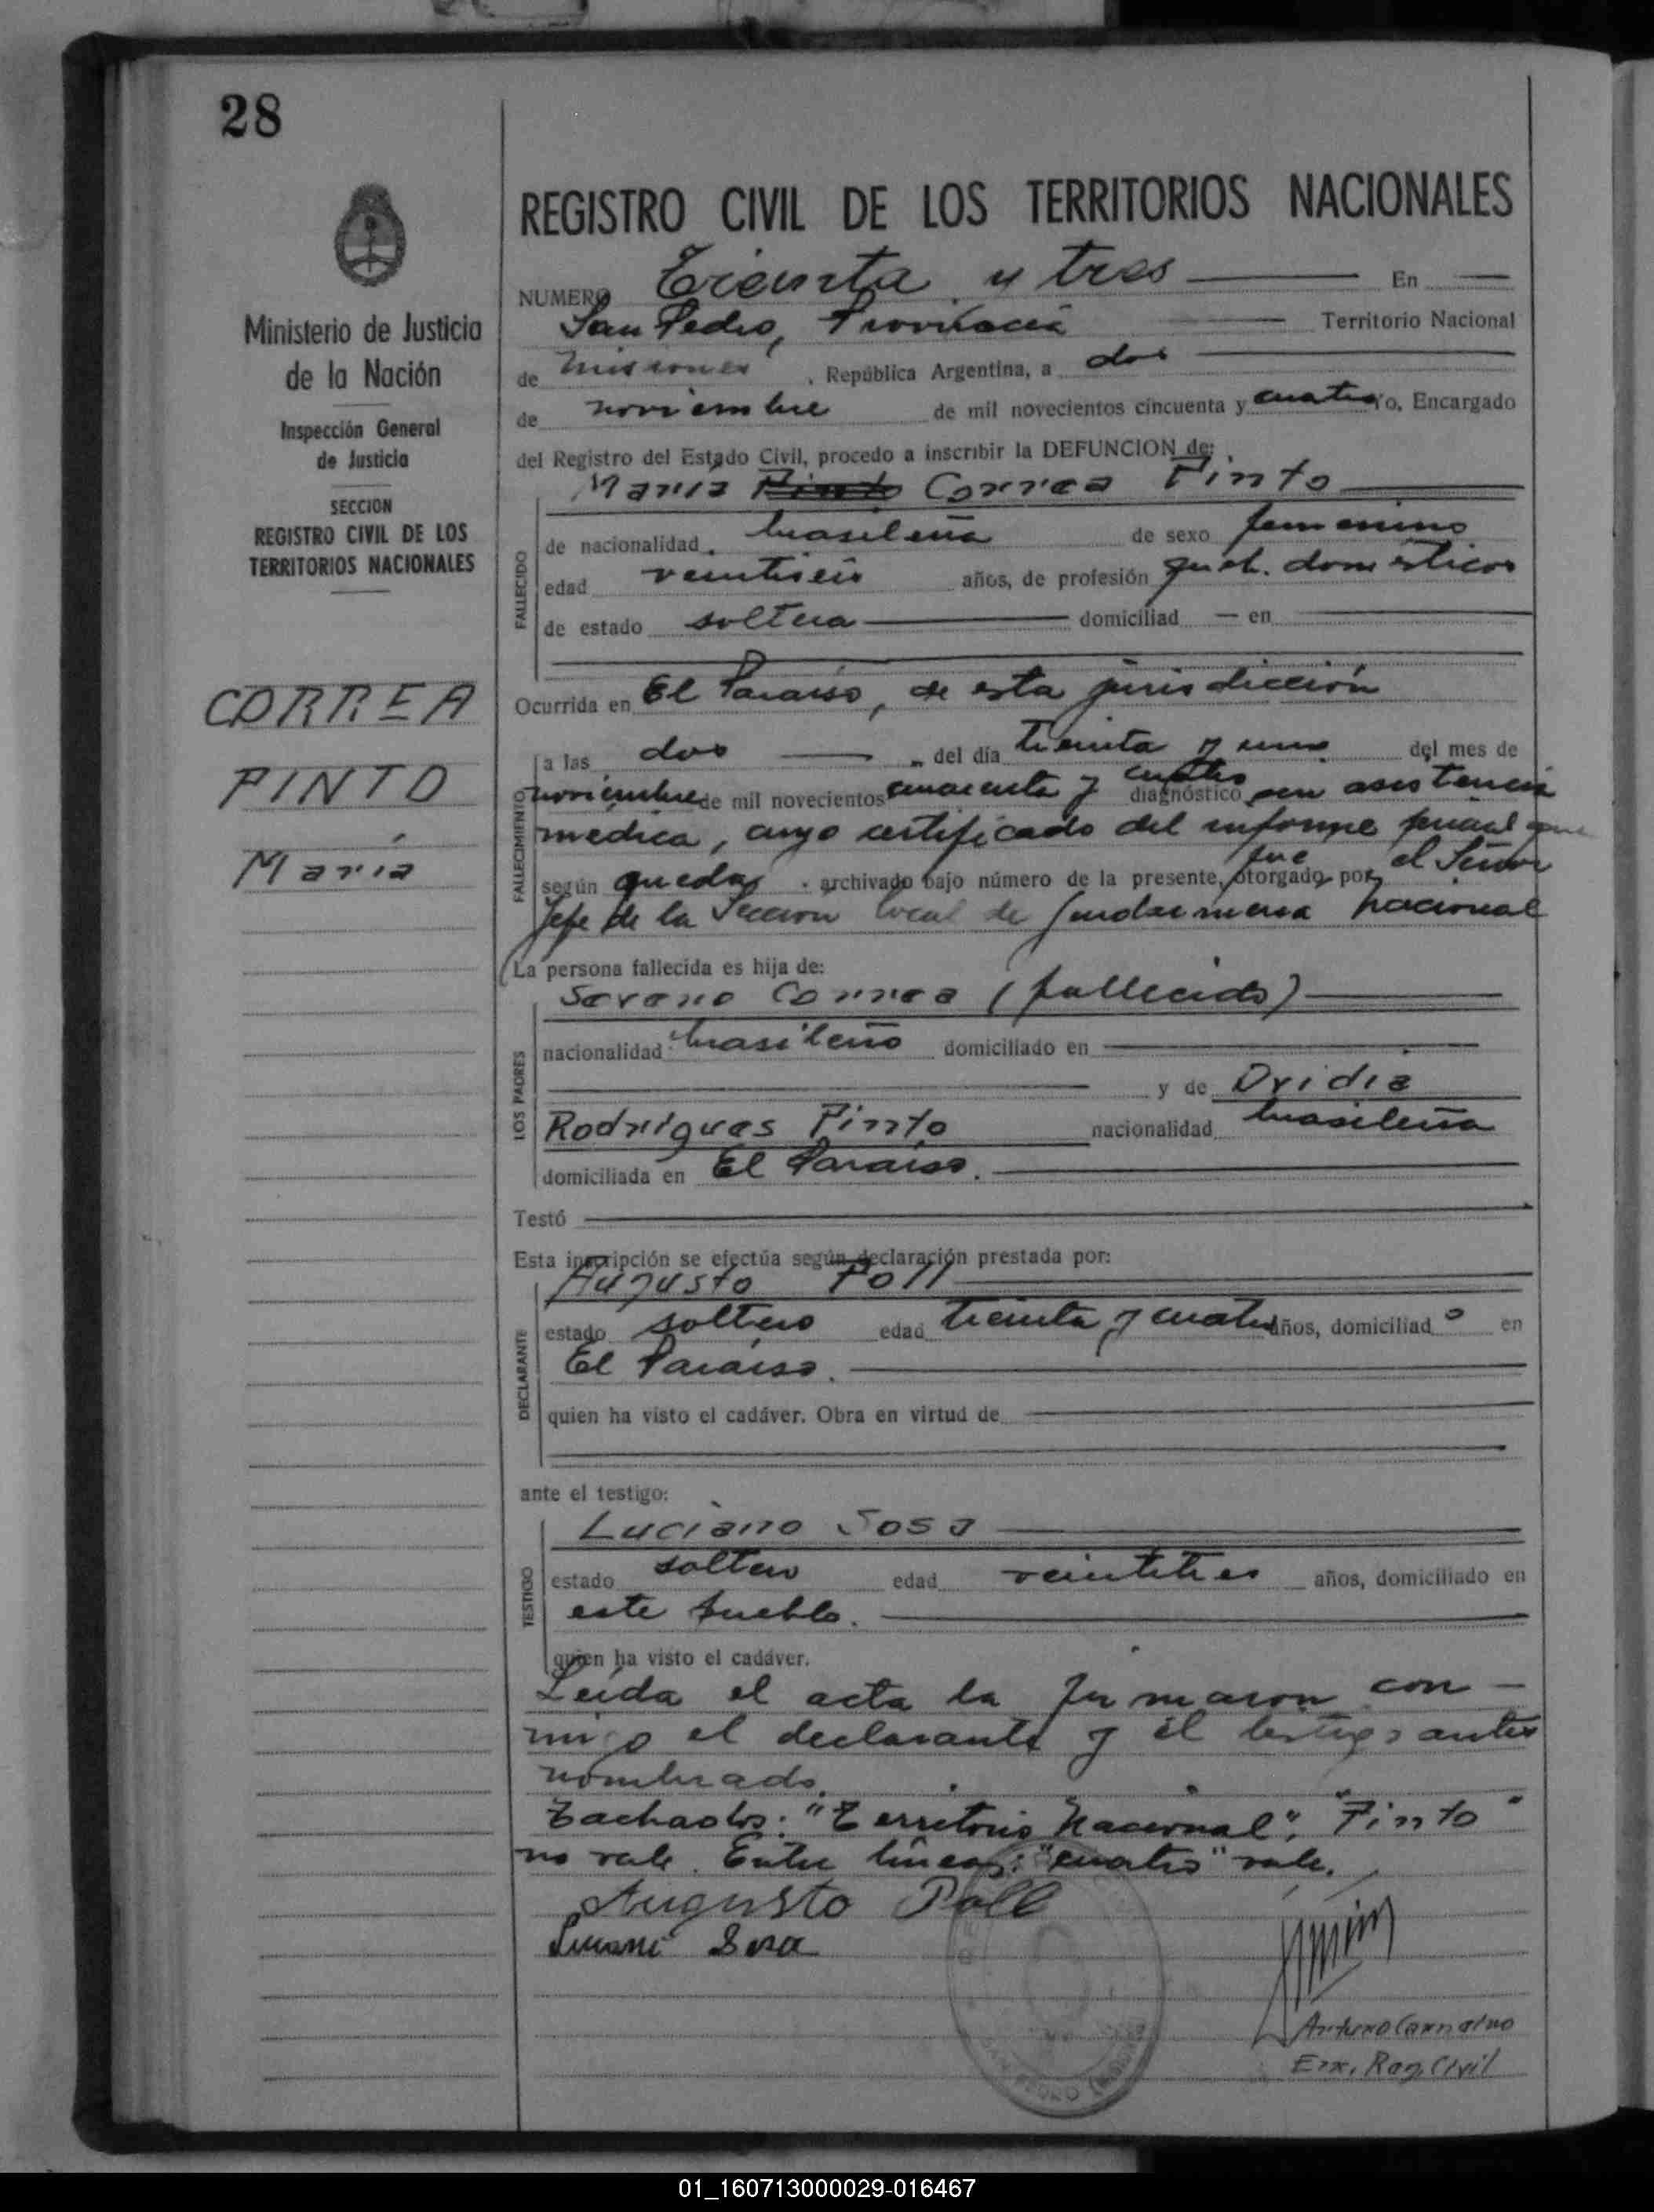 28
REGISTRO CIVIL DE LOS TERRITORIOS NACIONALES
Ministerio de Justicia
de la Nación
Inspección General
de Justicia
SECCION
REGISTRO CIVIL DE LOS
TERRITORIOS NACIONALES
CORREA
PINTO
María
NUMERO Treinta y tres En
San Pedro, Provincia Territorio Nacional
de Misiones, República Argentina, a dos
de noviembre de mil novecientos cincuenta y cuatro yo, Encargado
del Registro del Estado Civil, procedo a inscribir la DEFUNCION de:
María Pinto Correa Pinto
FALLECIDO
de nacionalidad brasileña de sexo femenino
edad veintiseis años, de profesión queh. domésticos
de estado soltera domiciliad en
Ocurrida en El Paraiso, de esta jurisdicción
FALLECIMIENTO
a las dos del día treinta y uno del mes de
noviembre de mil novecientos cincuenta y cuatro diagnóstico sin asistencia
médica, cuyo certificado del informe que
según queda archivado bajo número de la presente, fue otorgado por el Señor
Jefe de la Sección local de Gendarmeria Nacional
La persona fallecida es hija de:
LOS PADRES
Severo Correa (fallecido)
nacionalidad brasileño domiciliado en
y de Ovidia
Rodrigues Pinto nacionalidad brasileña
domiciliada en El Paraiso.
Testó
Esta inscripción se efectúa según declaración prestada por:
DECLARANTE
Augusto Poll
estado soltero edad treinta y cuatro años, domiciliado en
El Paraiso.
quien ha visto el cadáver. Obra en virtud de
ante el testigo:
TESTIGO
Luciano Sosa
estado soltero edad veintitres años, domiciliado en
este pueblo.
quien ha visto el cadáver.
Leida el acta la firmaron con-
migo el declarante y el testigo antes
nombrado.
Tachados: "Territorio Nacional", "Pinto"
no vale. Entre lineas: "cuatro" vale.
Augusto Poll
Luciano Sosa
Arturo
Enc. Reg. Civil
SAN PEDRO
01_160713000029-016467